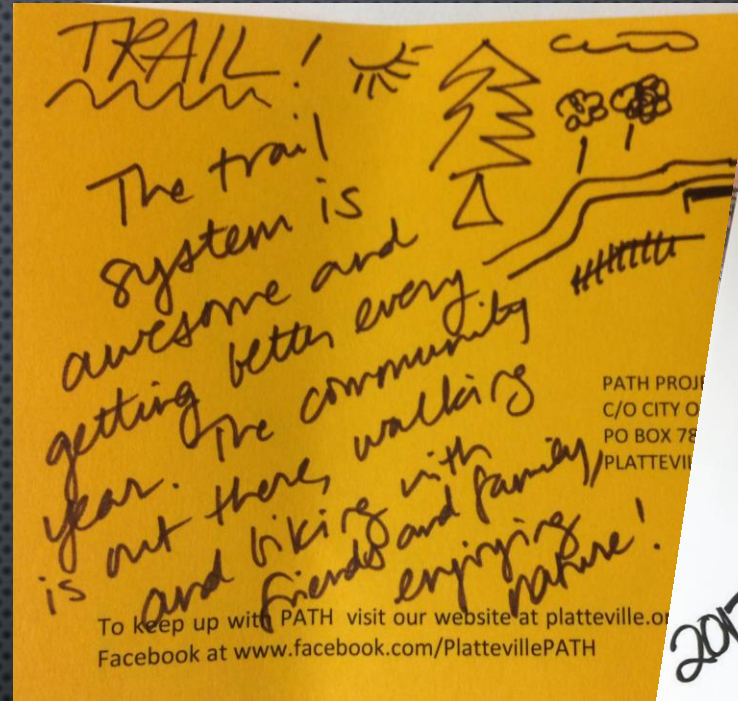 TRAIL!
The trail
system is
awesome and
getting better every
year. The community
is out there, walking
and biking with
friends and family,
enjoying
nature!
PATH PROJE
C/O CITY O
PO BOX 78
PLATTEVIL
To keep up with PATH visit our website at platteville.or
Facebook at www.facebook.com/PlattevillePATH
2017